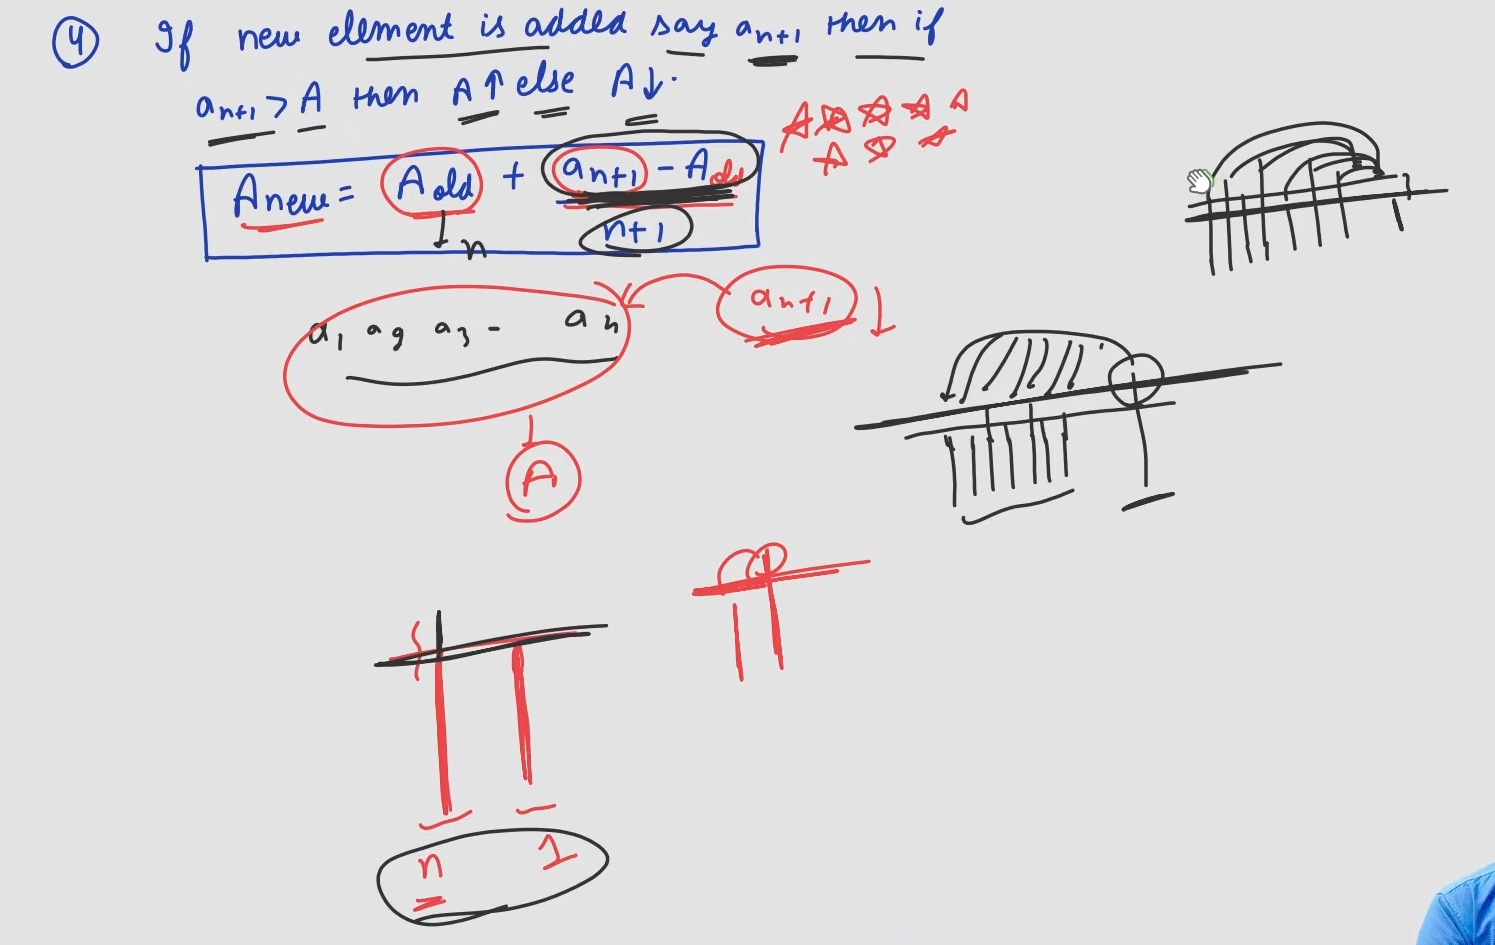 4 If new element is added say aₙ₊₁ then if
aₙ₊₁ > A then A ↑ else A ↓.
A new = A old + (aₙ₊₁ - A old) / n+1
n
a₁ a₂ a₃ - aₙ
aₙ₊₁ ↓
A
n 1